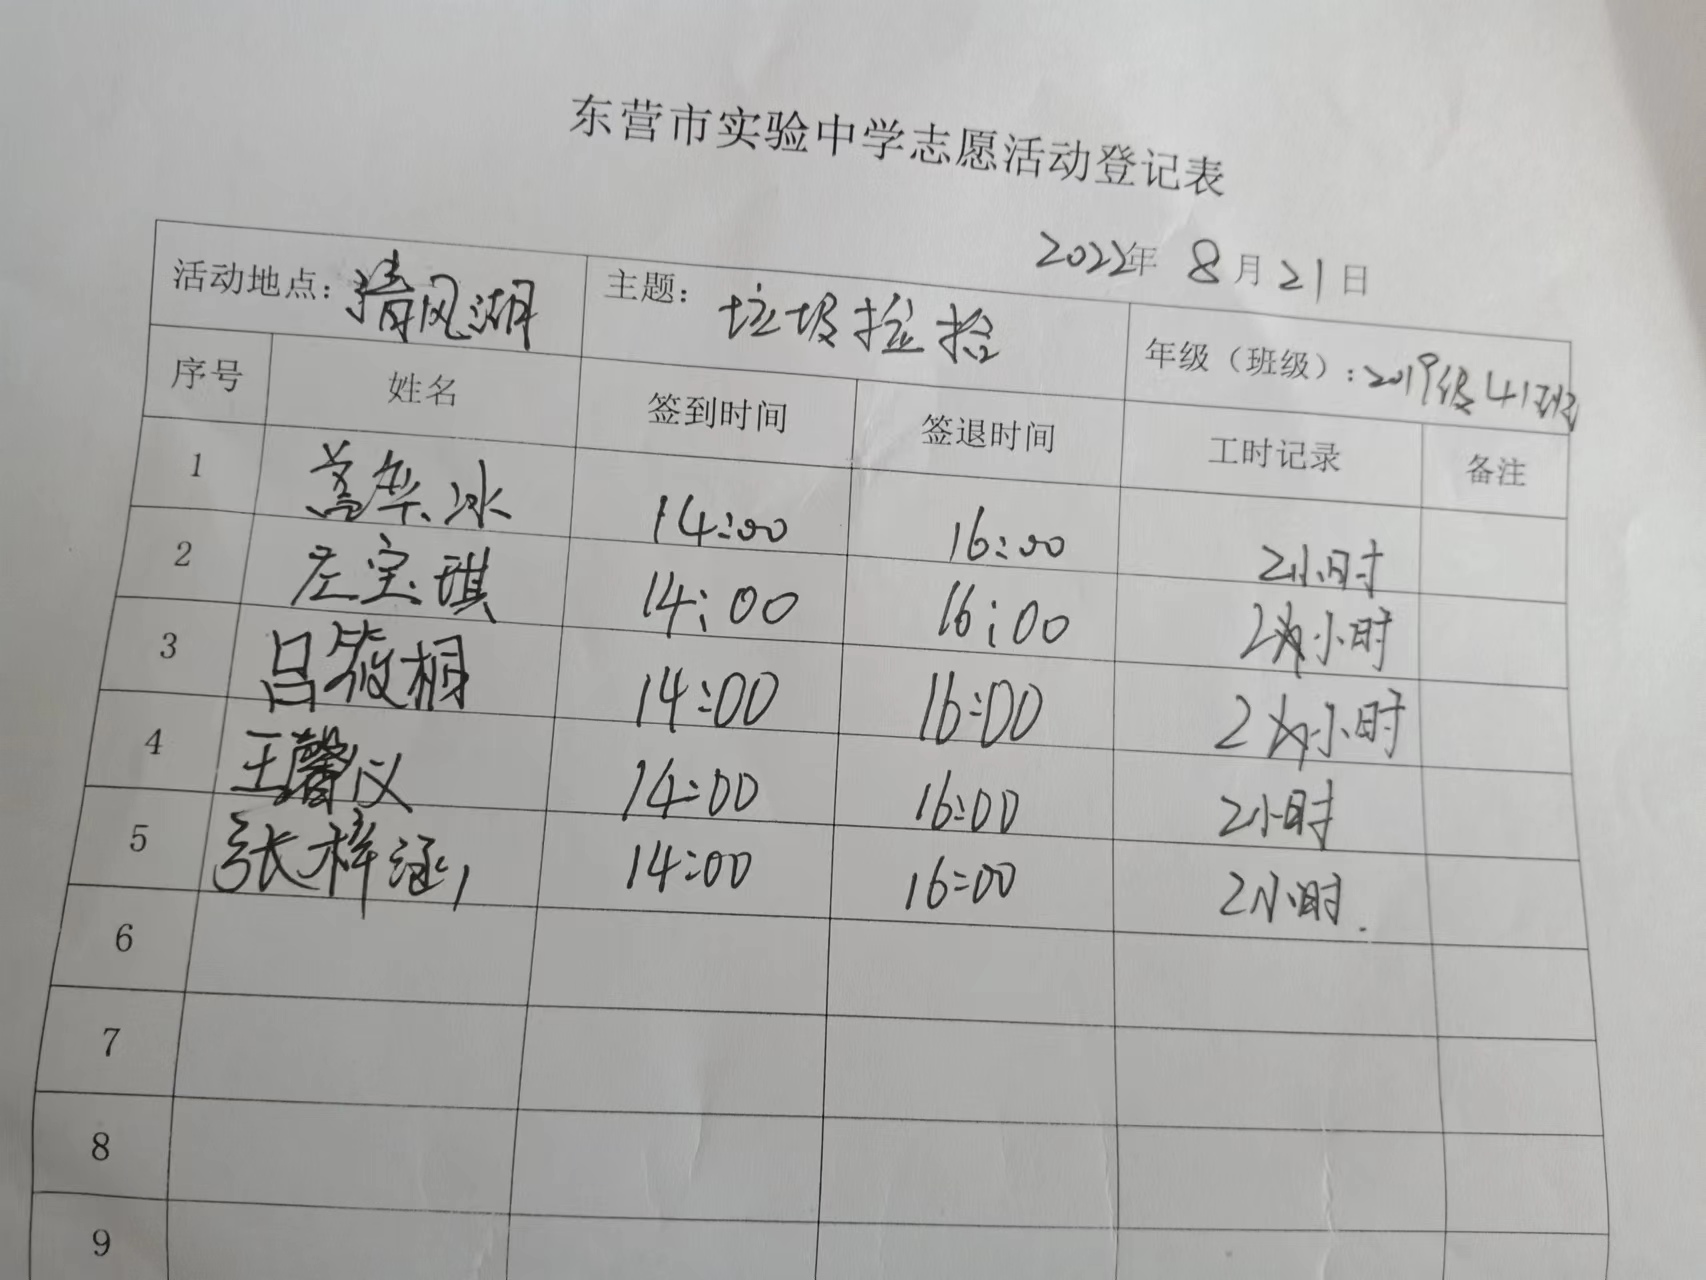 东营市实验中学志愿活动登记表
2022年 8月21日
活动地点：清风湖 主题：垃圾捡拾 年级（班级）：2019级41班
序号 姓名 签到时间 签退时间 工时记录 备注
1 盖华冰 14:00 16:00 2小时
2 左宝琪 14:00 16:00 2小时
3 吕筱桐 14:00 16:00 2小时
4 王馨仪 14:00 16:00 2小时
5 张梓涵 14:00 16:00 2小时.
6
7
8
9